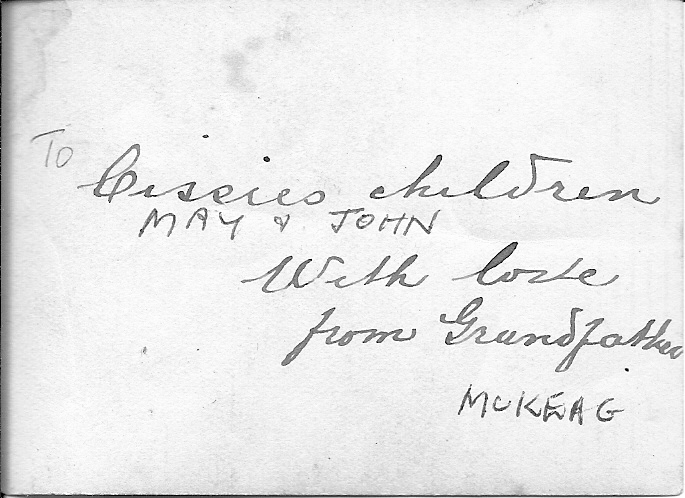 To Cissies children
MAY & JOHN
With love
from Grandfather
MCKEAG